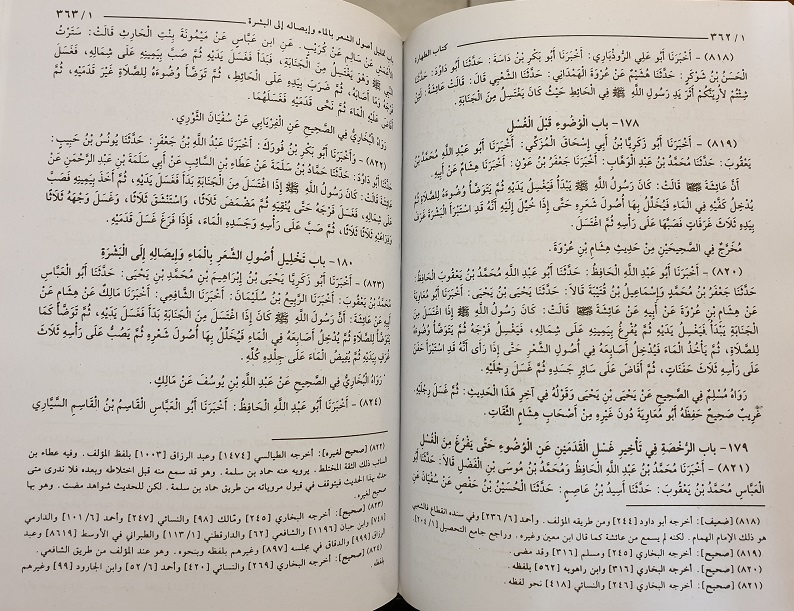 ٣٦٢/١
كتاب الطهارة
(٨١٨) - أَخْبَرَنَا أَبُو عَلِي الرُّوذْبَارِي: أَخْبَرَنَا أَبُو بَكْرِ بْنُ دَاسَةَ: حَدَّثَنَا أَبُو دَاوُدَ: حَدَّثَنَا
الْحَسَنُ بْنُ شَوْكَرٍ: حَدَّثَنَا هُشَيْمٌ عَنْ عُرْوَةَ الْهَمْدَانِي: حَدَّثَنَا الشَّعْبِي قَالَ: قَالَتْ عَائِشَةُ: لَئِنْ
شِئْتُمْ لَأُرِيَنَّكُمْ أَثَرَ يَدِ رَسُولِ اللَّهِ ﷺ فِي الْحَائِطِ حَيْثُ كَانَ يَغْتَسِلُ مِنَ الْجَنَابَةِ.
١٧٨- باب الْوُضُوءِ قَبْلَ الْغُسْلِ
(٨١٩) - أَخْبَرَنَا أَبُو زَكَرِيَّا بْنُ أَبِي إِسْحَاقَ الْمُزَكِّي: أَخْبَرَنَا أَبُو عَبْدِ اللَّهِ مُحَمَّدُ بْنُ
يَعْقُوبَ: حَدَّثَنَا مُحَمَّدُ بْنُ عَبْدِ الْوَهَّابِ: أَخْبَرَنَا جَعْفَرُ بْنُ عَوْنٍ: أَخْبَرَنَا هِشَامٌ عَنْ أَبِيهِ.
أَنَّ عَائِشَةَ قَالَتْ: كَانَ رَسُولُ اللَّهِ ﷺ يَبْدَأُ فَيَغْسِلُ يَدَيْهِ ثُمَّ يَتَوَضَّأُ وُضُوءَهُ لِلصَّلَاةِ ثُمَّ
يُدْخِلُ كَفَّيْهِ فِي الْمَاءِ فَيُخَلِّلُ بِهَا أُصُولَ شَعَرِهِ حَتَّى إِذَا خُيِّلَ إِلَيْهِ أَنَّهُ قَدِ اسْتَبْرَأَ الْبَشَرَةَ غَرَفَ
بِيَدِهِ ثَلَاثَ غَرَفَاتٍ فَصَبَّهَا عَلَى رَأْسِهِ ثُمَّ اغْتَسَلَ.
مُخَرَّجٌ فِي الصَّحِيحَيْنِ مِنْ حَدِيثِ هِشَامِ بْنِ عُرْوَةَ.
(٨٢٠) - أَخْبَرَنَا أَبُو عَبْدِ اللَّهِ الْحَافِظُ: حَدَّثَنَا أَبُو عَبْدِ اللَّهِ مُحَمَّدُ بْنُ يَعْقُوبَ الْحَافِظُ:
حَدَّثَنَا جَعْفَرُ بْنُ مُحَمَّدٍ وَإِسْمَاعِيلُ بْنُ قُتَيْبَةَ قَالَا: حَدَّثَنَا يَحْيَى بْنُ يَحْيَى: أَخْبَرَنَا أَبُو مُعَاوِيَةَ
عَنْ هِشَامِ بْنِ عُرْوَةَ عَنْ أَبِيهِ عَنْ عَائِشَةَ قَالَتْ: كَانَ رَسُولُ اللَّهِ ﷺ إِذَا اغْتَسَلَ مِنَ
الْجَنَابَةِ يَبْدَأُ فَيَغْسِلُ يَدَيْهِ ثُمَّ يُفْرِغُ بِيَمِينِهِ عَلَى شِمَالِهِ، فَيَغْسِلُ فَرْجَهُ ثُمَّ يَتَوَضَّأُ وُضُوءَهُ
لِلصَّلَاةِ، ثُمَّ يَأْخُذُ الْمَاءَ فَيُدْخِلُ أَصَابِعَهُ فِي أُصُولِ الشَّعَرِ حَتَّى إِذَا رَأَى أَنَّهُ قَدِ اسْتَبْرَأَ حَفَنَ
عَلَى رَأْسِهِ ثَلَاثَ حَفَنَاتٍ، ثُمَّ أَفَاضَ عَلَى سَائِرِ جَسَدِهِ ثُمَّ غَسَلَ رِجْلَيْهِ.
رَوَاهُ مُسْلِمٌ فِي الصَّحِيحِ عَنْ يَحْيَى بْنِ يَحْيَى وَقَوْلُهُ فِي آخِرِ هَذَا الْحَدِيثِ: ثُمَّ غَسَلَ رِجْلَيْهِ.
غَرِيبٌ صَحِيحٌ حَفِظَهُ أَبُو مُعَاوِيَةَ دُونَ غَيْرِهِ مِنْ أَصْحَابِ هِشَامٍ الثِّقَاتِ.
١٧٩- باب الرُّخْصَةِ فِي تَأْخِيرِ غَسْلِ الْقَدَمَيْنِ عَنِ الْوُضُوءِ حَتَّى يَفْرُغَ مِنَ الْغُسْلِ
(٨٢١) - أَخْبَرَنَا أَبُو عَبْدِ اللَّهِ الْحَافِظُ وَمُحَمَّدُ بْنُ مُوسَى بْنِ الْفَضْلِ قَالَا: حَدَّثَنَا أَبُو
الْعَبَّاسِ مُحَمَّدُ بْنُ يَعْقُوبَ: حَدَّثَنَا أَسِيدُ بْنُ عَاصِمٍ: حَدَّثَنَا الْحُسَيْنُ بْنُ حَفْصٍ عَنْ سُفْيَانَ عَنِ
(٨١٨) [ضعيف]: أخرجه أبو داود [٢٤٤] ومن طريقه المؤلف. وأحمد [٢٣٦/٦] وفي سنده انقطاع فالشعبي
هو ذلك الإمام الهمام. لكنه لم يسمع من عائشة كما قال ابن معين وغيره. وراجع جامع التحصيل [٢٠٤/١].
(٨١٩) [صحيح]: أخرجه البخاري [٢٤٥] ومسلم [٣١٦] وقد مضى.
(٨٢٠) [صحيح]: أخرجه البخاري [٣١٦] وابن راهويه [٥٦٢] بلفظه.
(٨٢١) [صحيح]: أخرجه البخاري [٢٤٦] والنسائي [٤١٨] نحو لفظه.
باب تخليل أصول الشعر بالماء وإيصاله إلى البشرة
٣٦٣/١
الْأَعْمَشِ عَنْ سَالِمٍ عَنْ كُرَيْبٍ، عَنِ ابْنِ عَبَّاسٍ عَنْ مَيْمُونَةَ بِنْتِ الْحَارِثِ قَالَتْ: سَتَرْتُ
النَّبِي ﷺ وَهُوَ يَغْتَسِلُ مِنَ الْجَنَابَةِ، فَبَدَأَ فَغَسَلَ يَدَيْهِ ثُمَّ صَبَّ بِيَمِينِهِ عَلَى شِمَالِهِ، فَغَسَلَ
فَرْجَهُ وَمَا أَصَابَهُ، ثُمَّ ضَرَبَ بِيَدِهِ عَلَى الْحَائِطِ، ثُمَّ تَوَضَّأَ وُضُوءَهُ لِلصَّلَاةِ غَيْرَ قَدَمَيْهِ، ثُمَّ
أَفَاضَ عَلَيْهِ الْمَاءَ ثُمَّ نَحَّى قَدَمَيْهِ فَغَسَلَهُمَا.
رَوَاهُ الْبُخَارِيُّ فِي الصَّحِيحِ عَنِ الْفِرْيَابِي عَنْ سُفْيَانَ الثَّوْرِي.
(٨٢٢) - وَأَخْبَرَنَا أَبُو بَكْرِ بْنُ فُورَكَ: أَخْبَرَنَا عَبْدُ اللَّهِ بْنُ جَعْفَرٍ: حَدَّثَنَا يُونُسُ بْنُ حَبِيبٍ:
حَدَّثَنَا أَبُو دَاوُدَ: حَدَّثَنَا حَمَّادُ بْنُ سَلَمَةَ عَنْ عَطَاءِ بْنِ السَّائِبِ عَنْ أَبِي سَلَمَةَ بْنِ عَبْدِ الرَّحْمَنِ عَنْ
عَائِشَةَ قَالَتْ: كَانَ رَسُولُ اللَّهِ ﷺ إِذَا اغْتَسَلَ مِنَ الْجَنَابَةِ بَدَأَ فَغَسَلَ يَدَيْهِ، ثُمَّ أَخَذَ بِيَمِينِهِ فَصَبَّ
عَلَى شِمَالِهِ، فَغَسَلَ فَرْجَهُ حَتَّى يُنْقِيَهُ ثُمَّ مَضْمَضَ ثَلَاثًا، وَاسْتَنْشَقَ ثَلَاثًا، وَغَسَلَ وَجْهَهُ ثَلَاثًا
وَذِرَاعَيْهِ ثَلَاثًا ثَلَاثًا، ثُمَّ صَبَّ عَلَى رَأْسِهِ وَجَسَدِهِ الْمَاءَ، فَإِذَا فَرَغَ غَسَلَ قَدَمَيْهِ.
١٨٠- باب تَخْلِيلِ أُصُولِ الشَّعَرِ بِالْمَاءِ وَإِيصَالِهِ إِلَى الْبَشَرَةِ
(٨٢٣) - أَخْبَرَنَا أَبُو زَكَرِيَّا يَحْيَى بْنُ إِبْرَاهِيمَ بْنِ مُحَمَّدِ بْنِ يَحْيَى: حَدَّثَنَا أَبُو الْعَبَّاسِ
مُحَمَّدُ بْنُ يَعْقُوبَ: أَخْبَرَنَا الرَّبِيعُ بْنُ سُلَيْمَانَ: أَخْبَرَنَا الشَّافِعِي: أَخْبَرَنَا مَالِكٌ عَنْ هِشَامٍ عَنْ
أَبِيهِ عَنْ عَائِشَةَ: أَنَّ رَسُولَ اللَّهِ ﷺ كَانَ إِذَا اغْتَسَلَ مِنَ الْجَنَابَةِ بَدَأَ فَغَسَلَ يَدَيْهِ، ثُمَّ تَوَضَّأَ كَمَا
يَتَوَضَّأُ لِلصَّلَاةِ ثُمَّ يُدْخِلُ أَصَابِعَهُ فِي الْمَاءِ فَيُخَلِّلُ بِهَا أُصُولَ شَعَرِهِ ثُمَّ يَصُبُّ عَلَى رَأْسِهِ ثَلَاثَ
غُرَفٍ بِيَدَيْهِ ثُمَّ يُفِيضُ الْمَاءَ عَلَى جِلْدِهِ كُلِّهِ.
رَوَاهُ الْبُخَارِيُّ فِي الصَّحِيحِ عَنْ عَبْدِ اللَّهِ بْنِ يُوسُفَ عَنْ مَالِكٍ.
(٨٢٤) - أَخْبَرَنَا أَبُو عَبْدِ اللَّهِ الْحَافِظُ: أَخْبَرَنَا أَبُو الْعَبَّاسِ الْقَاسِمُ بْنُ الْقَاسِمِ السَّيَّارِي
(٨٢٢) [صحيح لغيره]: أخرجه الطيالسي [١٤٧٤] وعبد الرزاق [١٠٠٣] بلفظ المؤلف. وفيه عطاء بن
السائب ذلك الثقة المختلط. يرويه عنه حماد بن سلمة. وهو قد سمع منه قبل اختلاطه وبعده فلا ندرى متى
حدث بهذا الحديث فيتوقف في قبول مروياته من طريق حماد بن سلمة. لكن للحديث شواهد مضت. وهو بها
صحيح لغيره.
(٨٢٣) [صحيح]: أخرجه البخاري [٢٤٥] ومالك [٩٨] والنسائي [٢٤٧] وأحمد [١٠١/٦] والدارمي
[٧٤٨] وابن حبان [١١٩٦] والشافعي [٦٢] والدارقطني [١١٣/١] والطبراني في الأوسط [٨٦١٩] وعبد
الرزاق [٩٩٩] والدقاق في مجلسه [٨٩٧] وغيرهم بلفظه وبنحوه. وهو عند المؤلف من طريق الشافعي.
(٨٢٤) [صحيح]: أخرجه البخاري [٢٦٩] والنسائي [٤٢٠] وأحمد [٥٢/٦] وابن الجارود [٩٩] وغيرهم